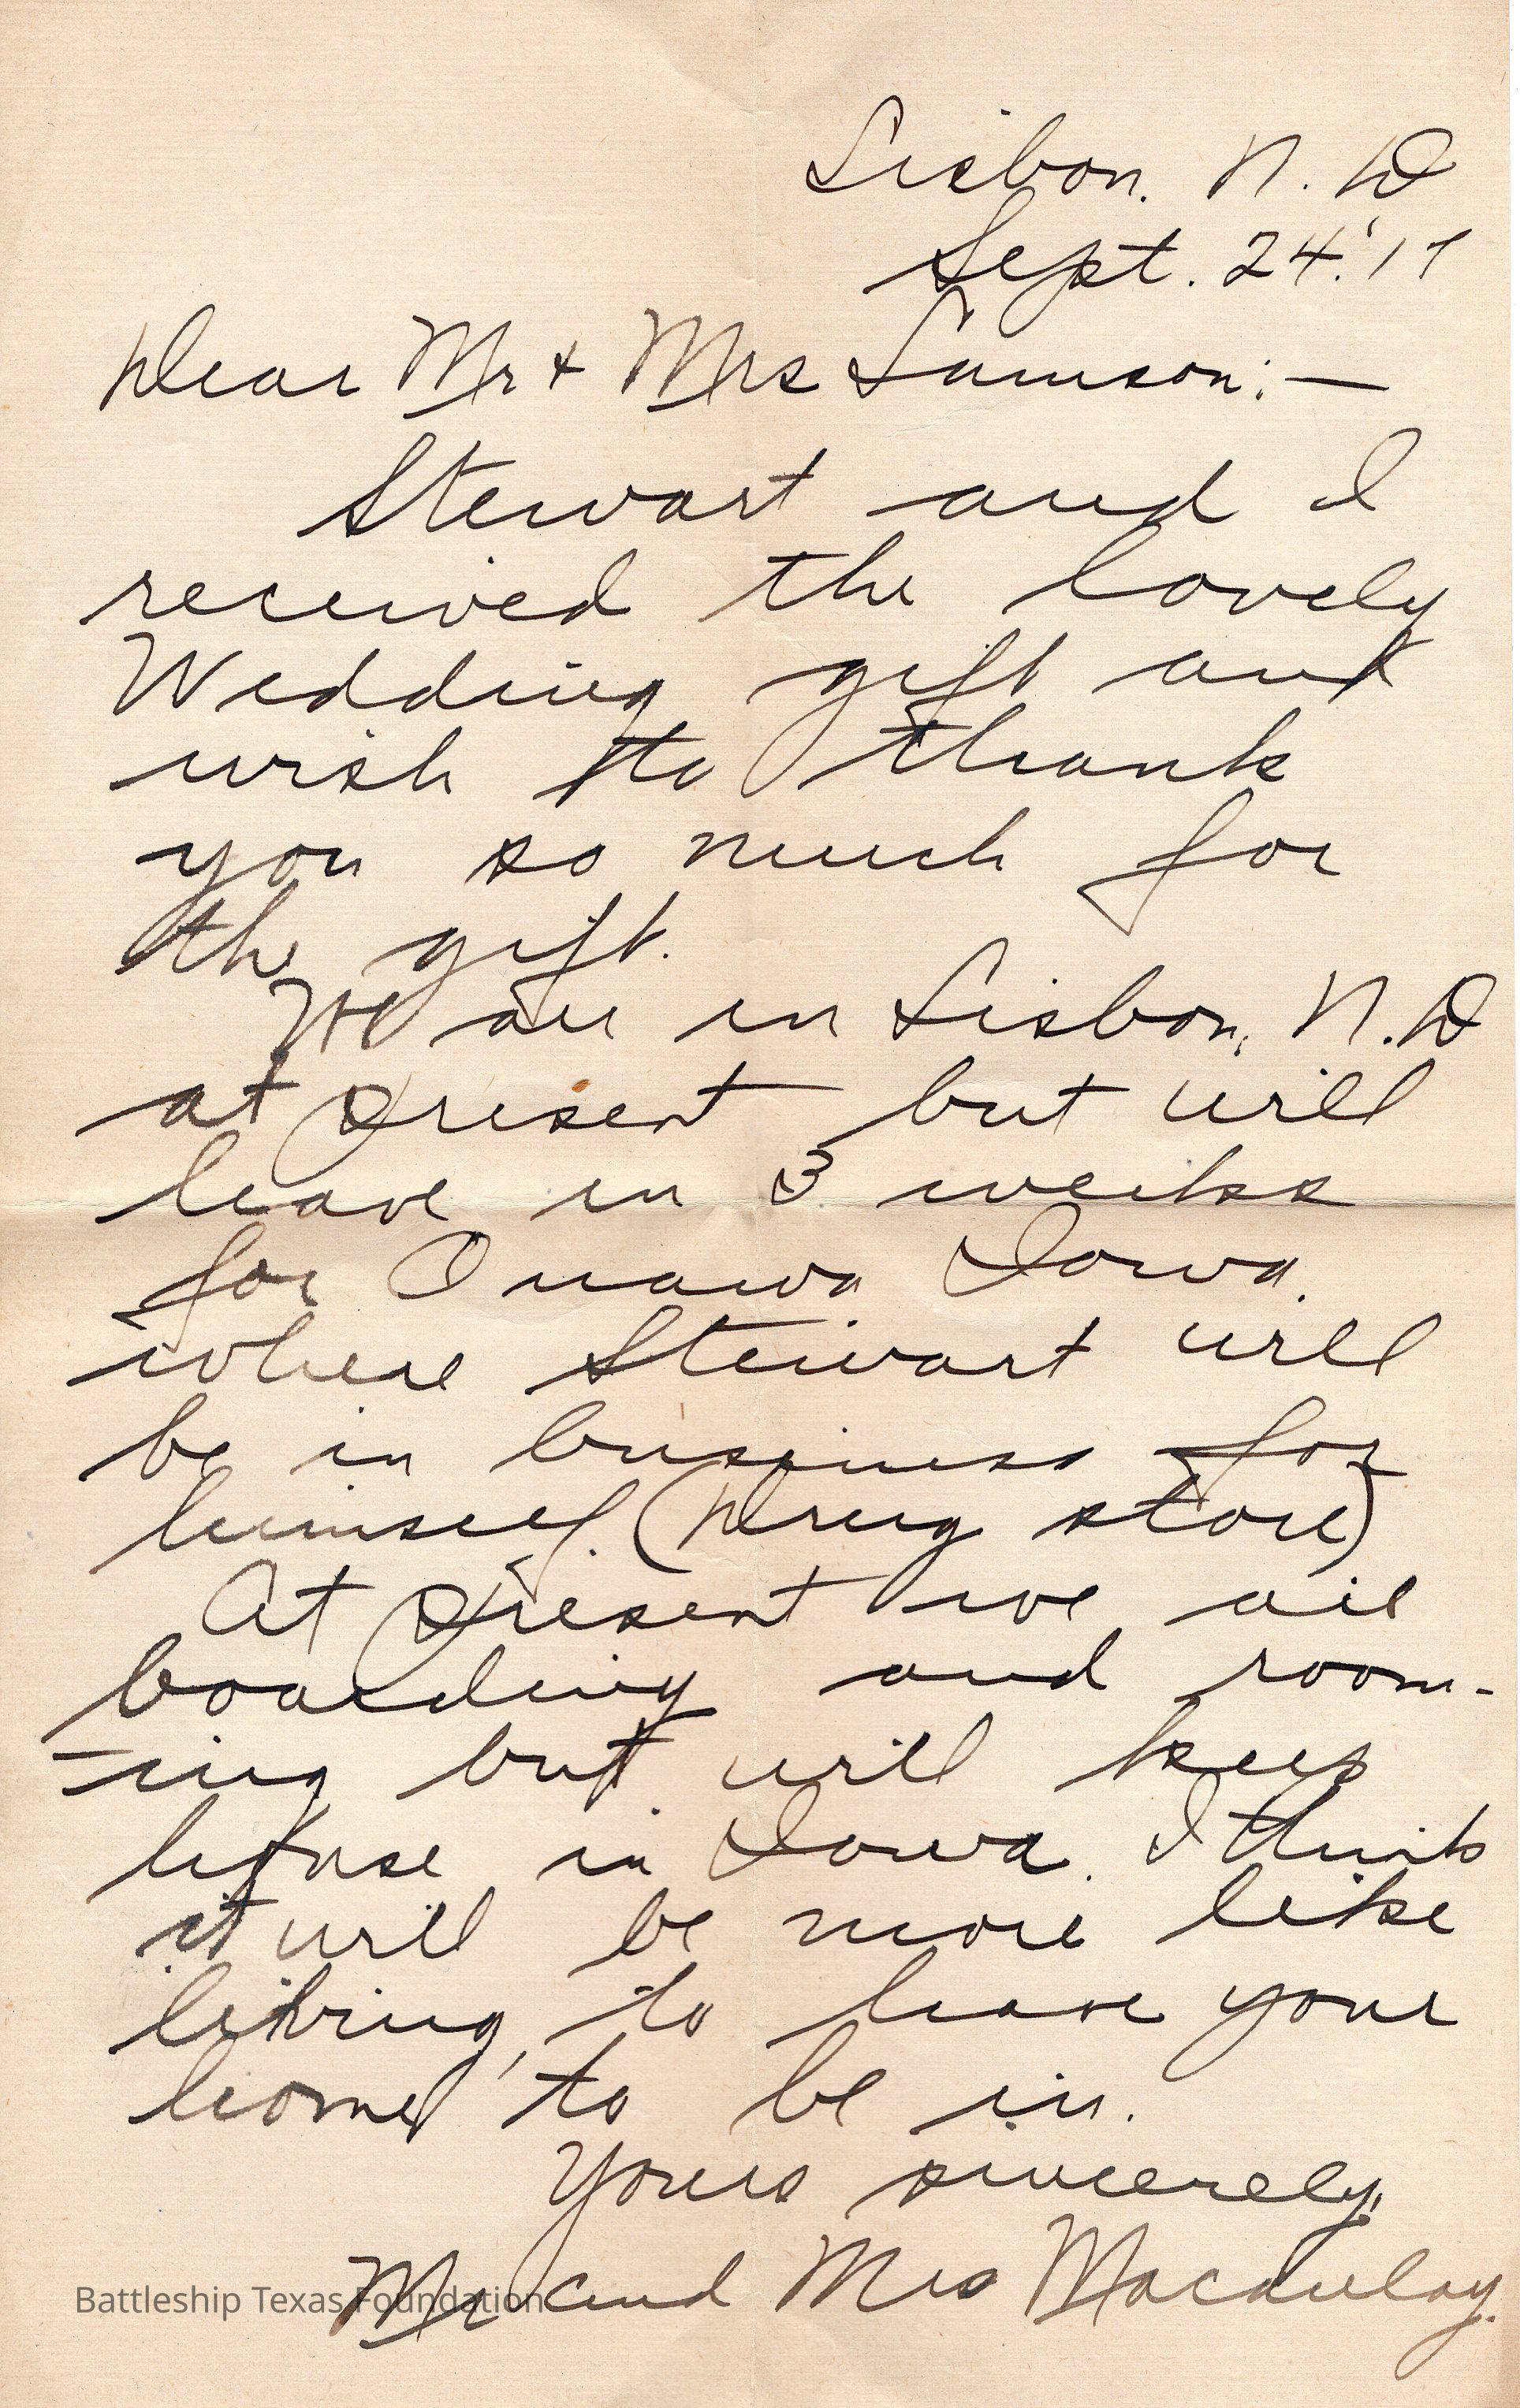 Lisbon. N. D
Sept. 24.'17
Dear Mr + Mrs Samson:—
Stewart and I
received the lovely
Wedding gift and
wish to thank
you so much for
the gift.
We are in Lisbon, N.D
at present but will
leave in 3 weeks
for Onawa Iowa.
where Stewart will
be in business for
himself. (Drug store)
At present we are
boarding and room-
-ing but will keep
house in Iowa. I think
it will be more like
living, to have your
home to be in.
Yours sincerely,
Mr and Mrs Macaulay.
Battleship Texas Foundation